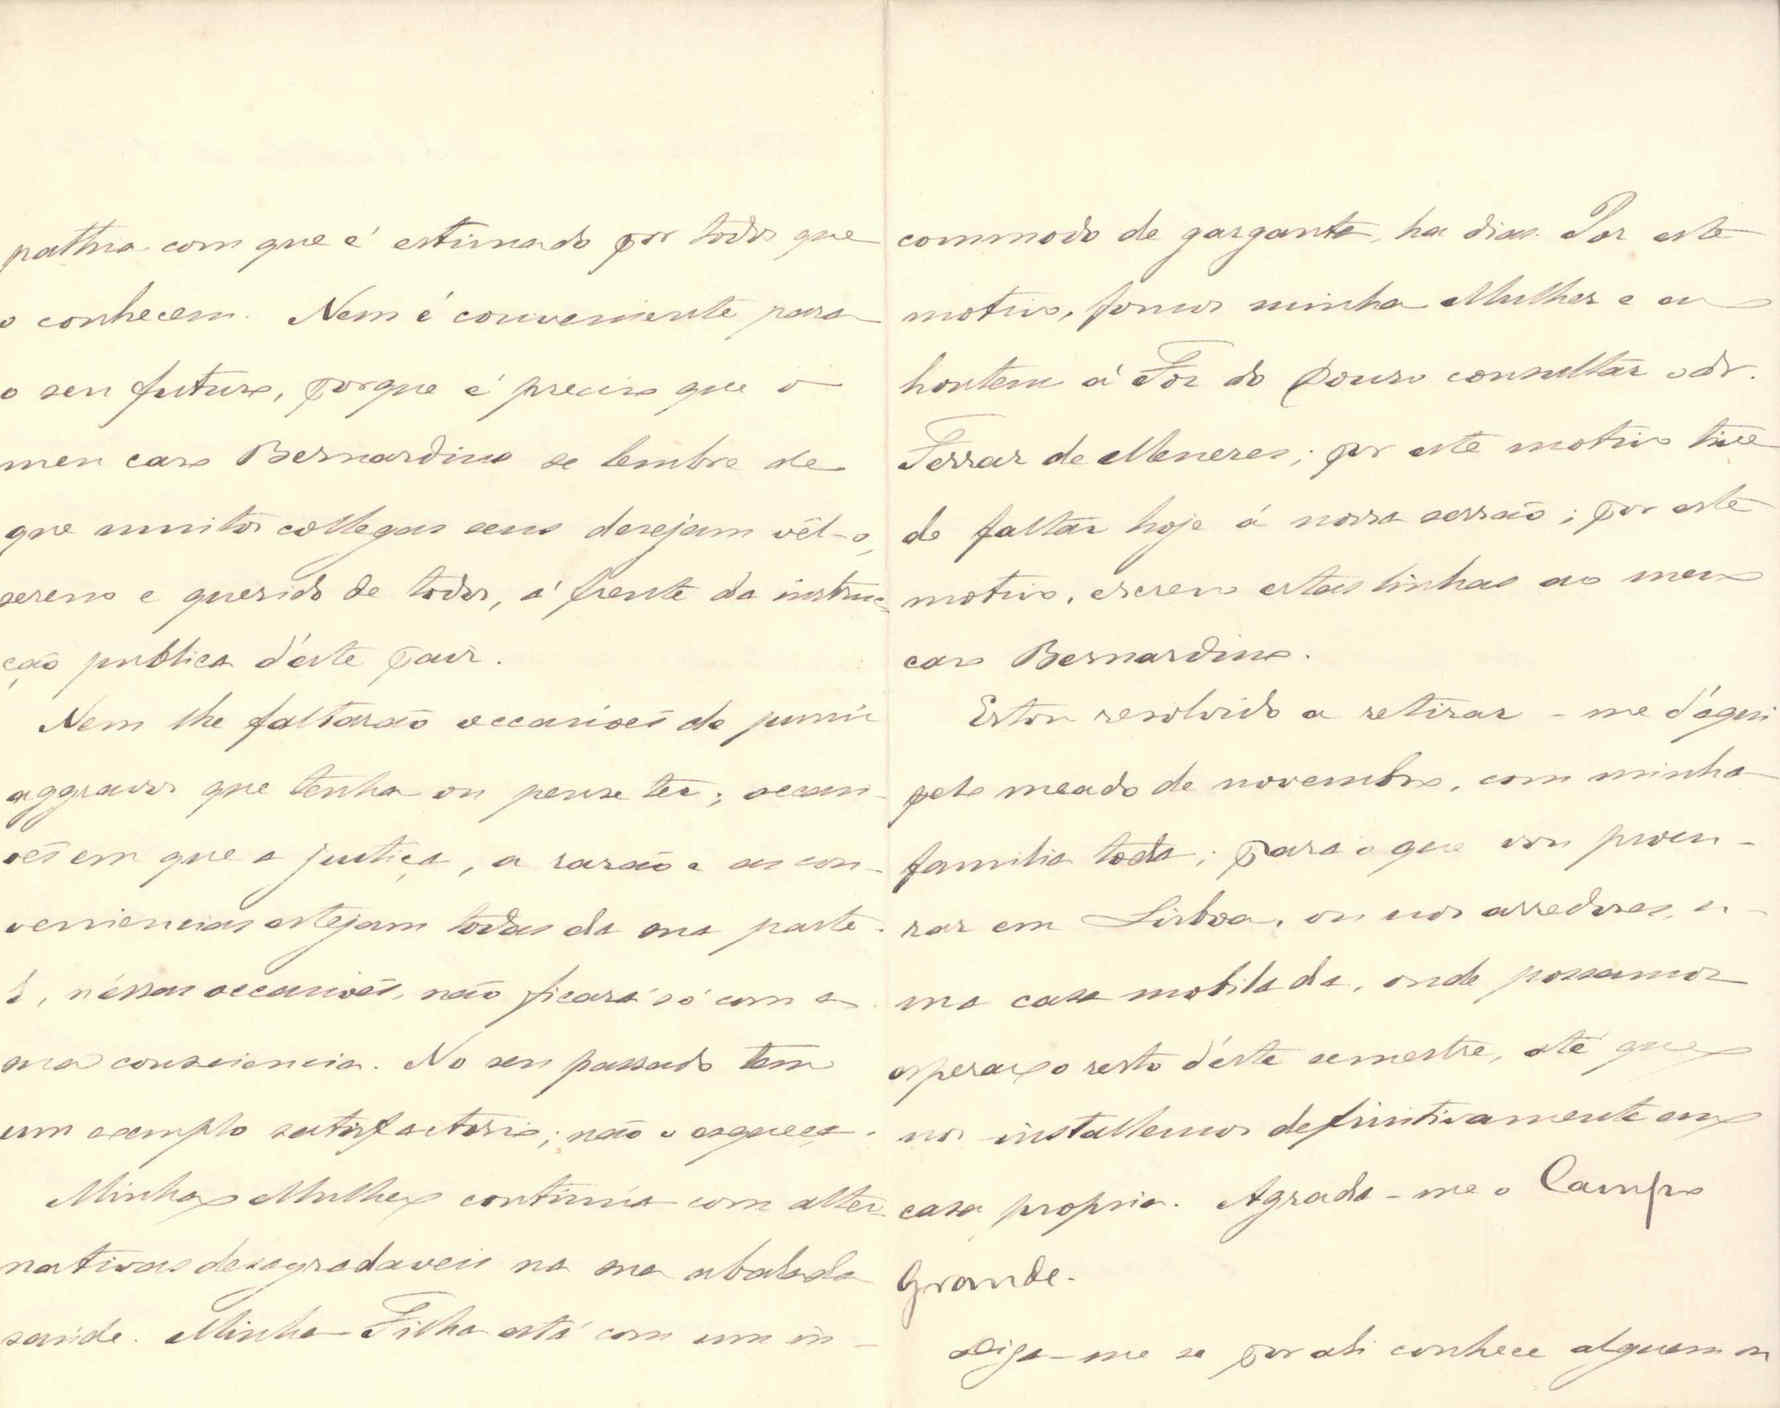 pathia com que é estimado por todos que
o conhecem. Nem é conveniente para
o seu futuro, porque é preciso que o
meu caro Bernardino se lembre de
que muitos collegas seus desejam vêl-o,
sereno e querido de todos, á frente da instruc-
ção publica d'éste paiz.
Nem lhe faltarão occasiões de punir
aggravos que tenha ou pense ter; occasi-
ões em que a justiça, a razão e as con-
veniencias estejam todas da sua parte.
E, n'éssas occasiões, não ficará só com a
sua consciencia. No seu passado tem
um exemplo satisfactorio; não o esqueça.
Minha Mulher continúa com alter-
nativas desagradaveis na sua abalada
saúde. Minha Filha está com um in-
commodo de garganta, ha dias. Por este
motivo, fomos minha Mulher e eu
hontem á Foz do Douro consultar o dr.
Ferraz de Menezes; por este motivo tive
de faltar hoje á nossa sessão; por este
motivo, escrevo estas linhas ao meu
caro Bernardino.
Estou resolvido a retirar-me d'áqui
pelo meado de novembro, com minha
familia toda; para o que vou procu-
rar em Lisboa, ou nos arredores, u-
ma casa mobilada, onde possamos
esperar o resto d'éste semestre, até que
nos installemos definitivamente em
casa propria. Agrada-me o Campo
Grande.
Diga-me se por ahi conhece alguem ou